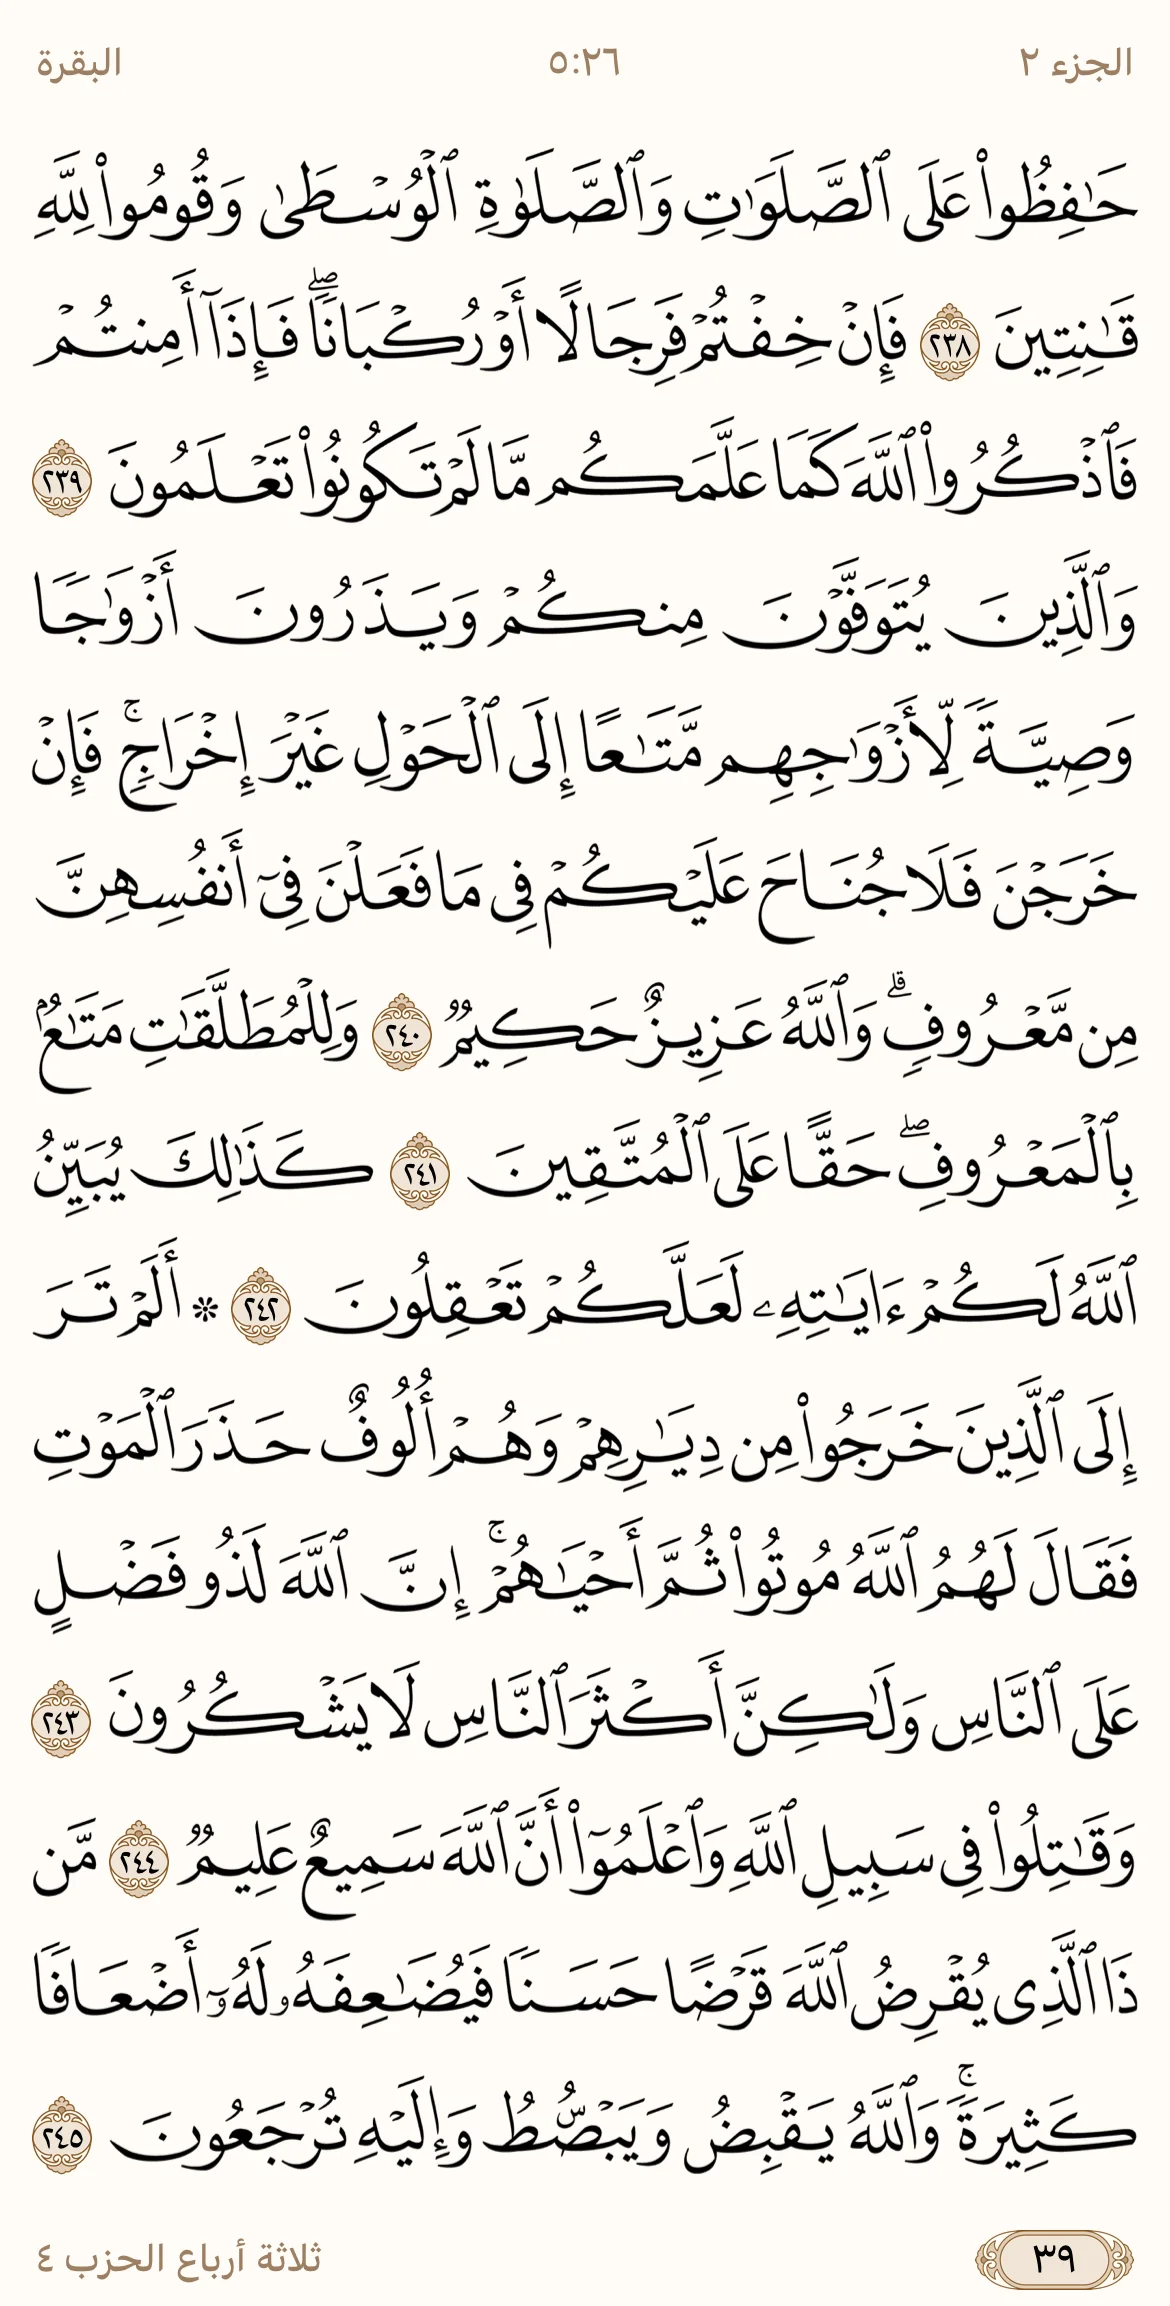 الجزء ٢
٥:٢٦
البقرة
حَٰفِظُوا۟ عَلَى ٱلصَّلَوَٰتِ وَٱلصَّلَوٰةِ ٱلْوُسْطَىٰ وَقُومُوا۟ لِلَّهِ
قَٰنِتِينَ ٢٣٨ فَإِنْ خِفْتُمْ فَرِجَالًا أَوْ رُكْبَانًا ۖ فَإِذَآ أَمِنتُمْ
فَٱذْكُرُوا۟ ٱللَّهَ كَمَا عَلَّمَكُم مَّا لَمْ تَكُونُوا۟ تَعْلَمُونَ ٢٣٩
وَٱلَّذِينَ يُتَوَفَّوْنَ مِنكُمْ وَيَذَرُونَ أَزْوَٰجًا
وَصِيَّةً لِّأَزْوَٰجِهِم مَّتَٰعًا إِلَى ٱلْحَوْلِ غَيْرَ إِخْرَاجٍ ۚ فَإِنْ
خَرَجْنَ فَلَا جُنَاحَ عَلَيْكُمْ فِى مَا فَعَلْنَ فِىٓ أَنفُسِهِنَّ
مِن مَّعْرُوفٍ ۗ وَٱللَّهُ عَزِيزٌ حَكِيمٌ ٢٤٠ وَلِلْمُطَلَّقَٰتِ مَتَٰعٌۢ
بِٱلْمَعْرُوفِ ۖ حَقًّا عَلَى ٱلْمُتَّقِينَ ٢٤١ كَذَٰلِكَ يُبَيِّنُ
ٱللَّهُ لَكُمْ ءَايَٰتِهِۦ لَعَلَّكُمْ تَعْقِلُونَ ٢٤٢ ۞ أَلَمْ تَرَ
إِلَى ٱلَّذِينَ خَرَجُوا۟ مِن دِيَٰرِهِمْ وَهُمْ أُلُوفٌ حَذَرَ ٱلْمَوْتِ
فَقَالَ لَهُمُ ٱللَّهُ مُوتُوا۟ ثُمَّ أَحْيَٰهُمْ ۚ إِنَّ ٱللَّهَ لَذُو فَضْلٍ
عَلَى ٱلنَّاسِ وَلَٰكِنَّ أَكْثَرَ ٱلنَّاسِ لَا يَشْكُرُونَ ٢٤٣
وَقَٰتِلُوا۟ فِى سَبِيلِ ٱللَّهِ وَٱعْلَمُوٓا۟ أَنَّ ٱللَّهَ سَمِيعٌ عَلِيمٌ ٢٤٤ مَّن
ذَا ٱلَّذِى يُقْرِضُ ٱللَّهَ قَرْضًا حَسَنًا فَيُضَٰعِفَهُۥ لَهُۥٓ أَضْعَافًا
كَثِيرَةً ۚ وَٱللَّهُ يَقْبِضُ وَيَبْصُۜطُ وَإِلَيْهِ تُرْجَعُونَ ٢٤٥
٣٩
ثلاثة أرباع الحزب ٤